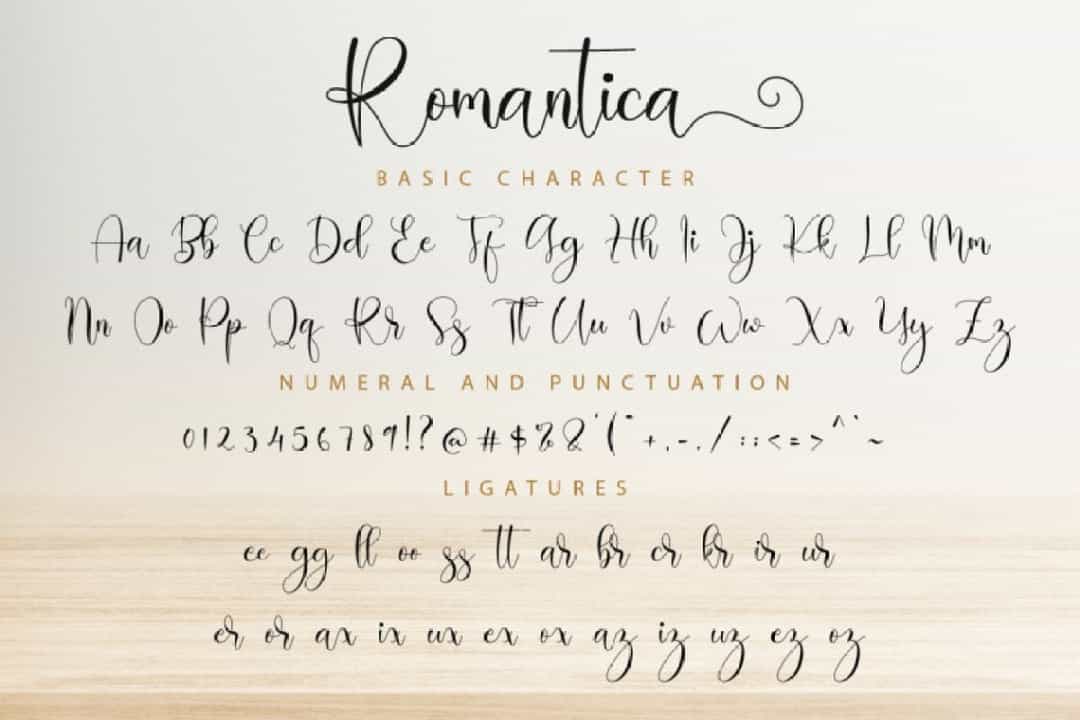 Romantica
BASIC CHARACTER
Aa Bb Cc Dd Ee Ff Gg Hh Ii Jj Kk Ll Mm
Nn Oo Pp Qq Rr Ss Tt Uu Vv Ww Xx Yy Zz
NUMERAL AND PUNCTUATION
0123456789!?@#$%&'("+,-./:;<=>^`~
LIGATURES
ee gg ll oo ss tt ar br cr kr ir ur
er or ax ix ux ex ox az iz uz ez oz